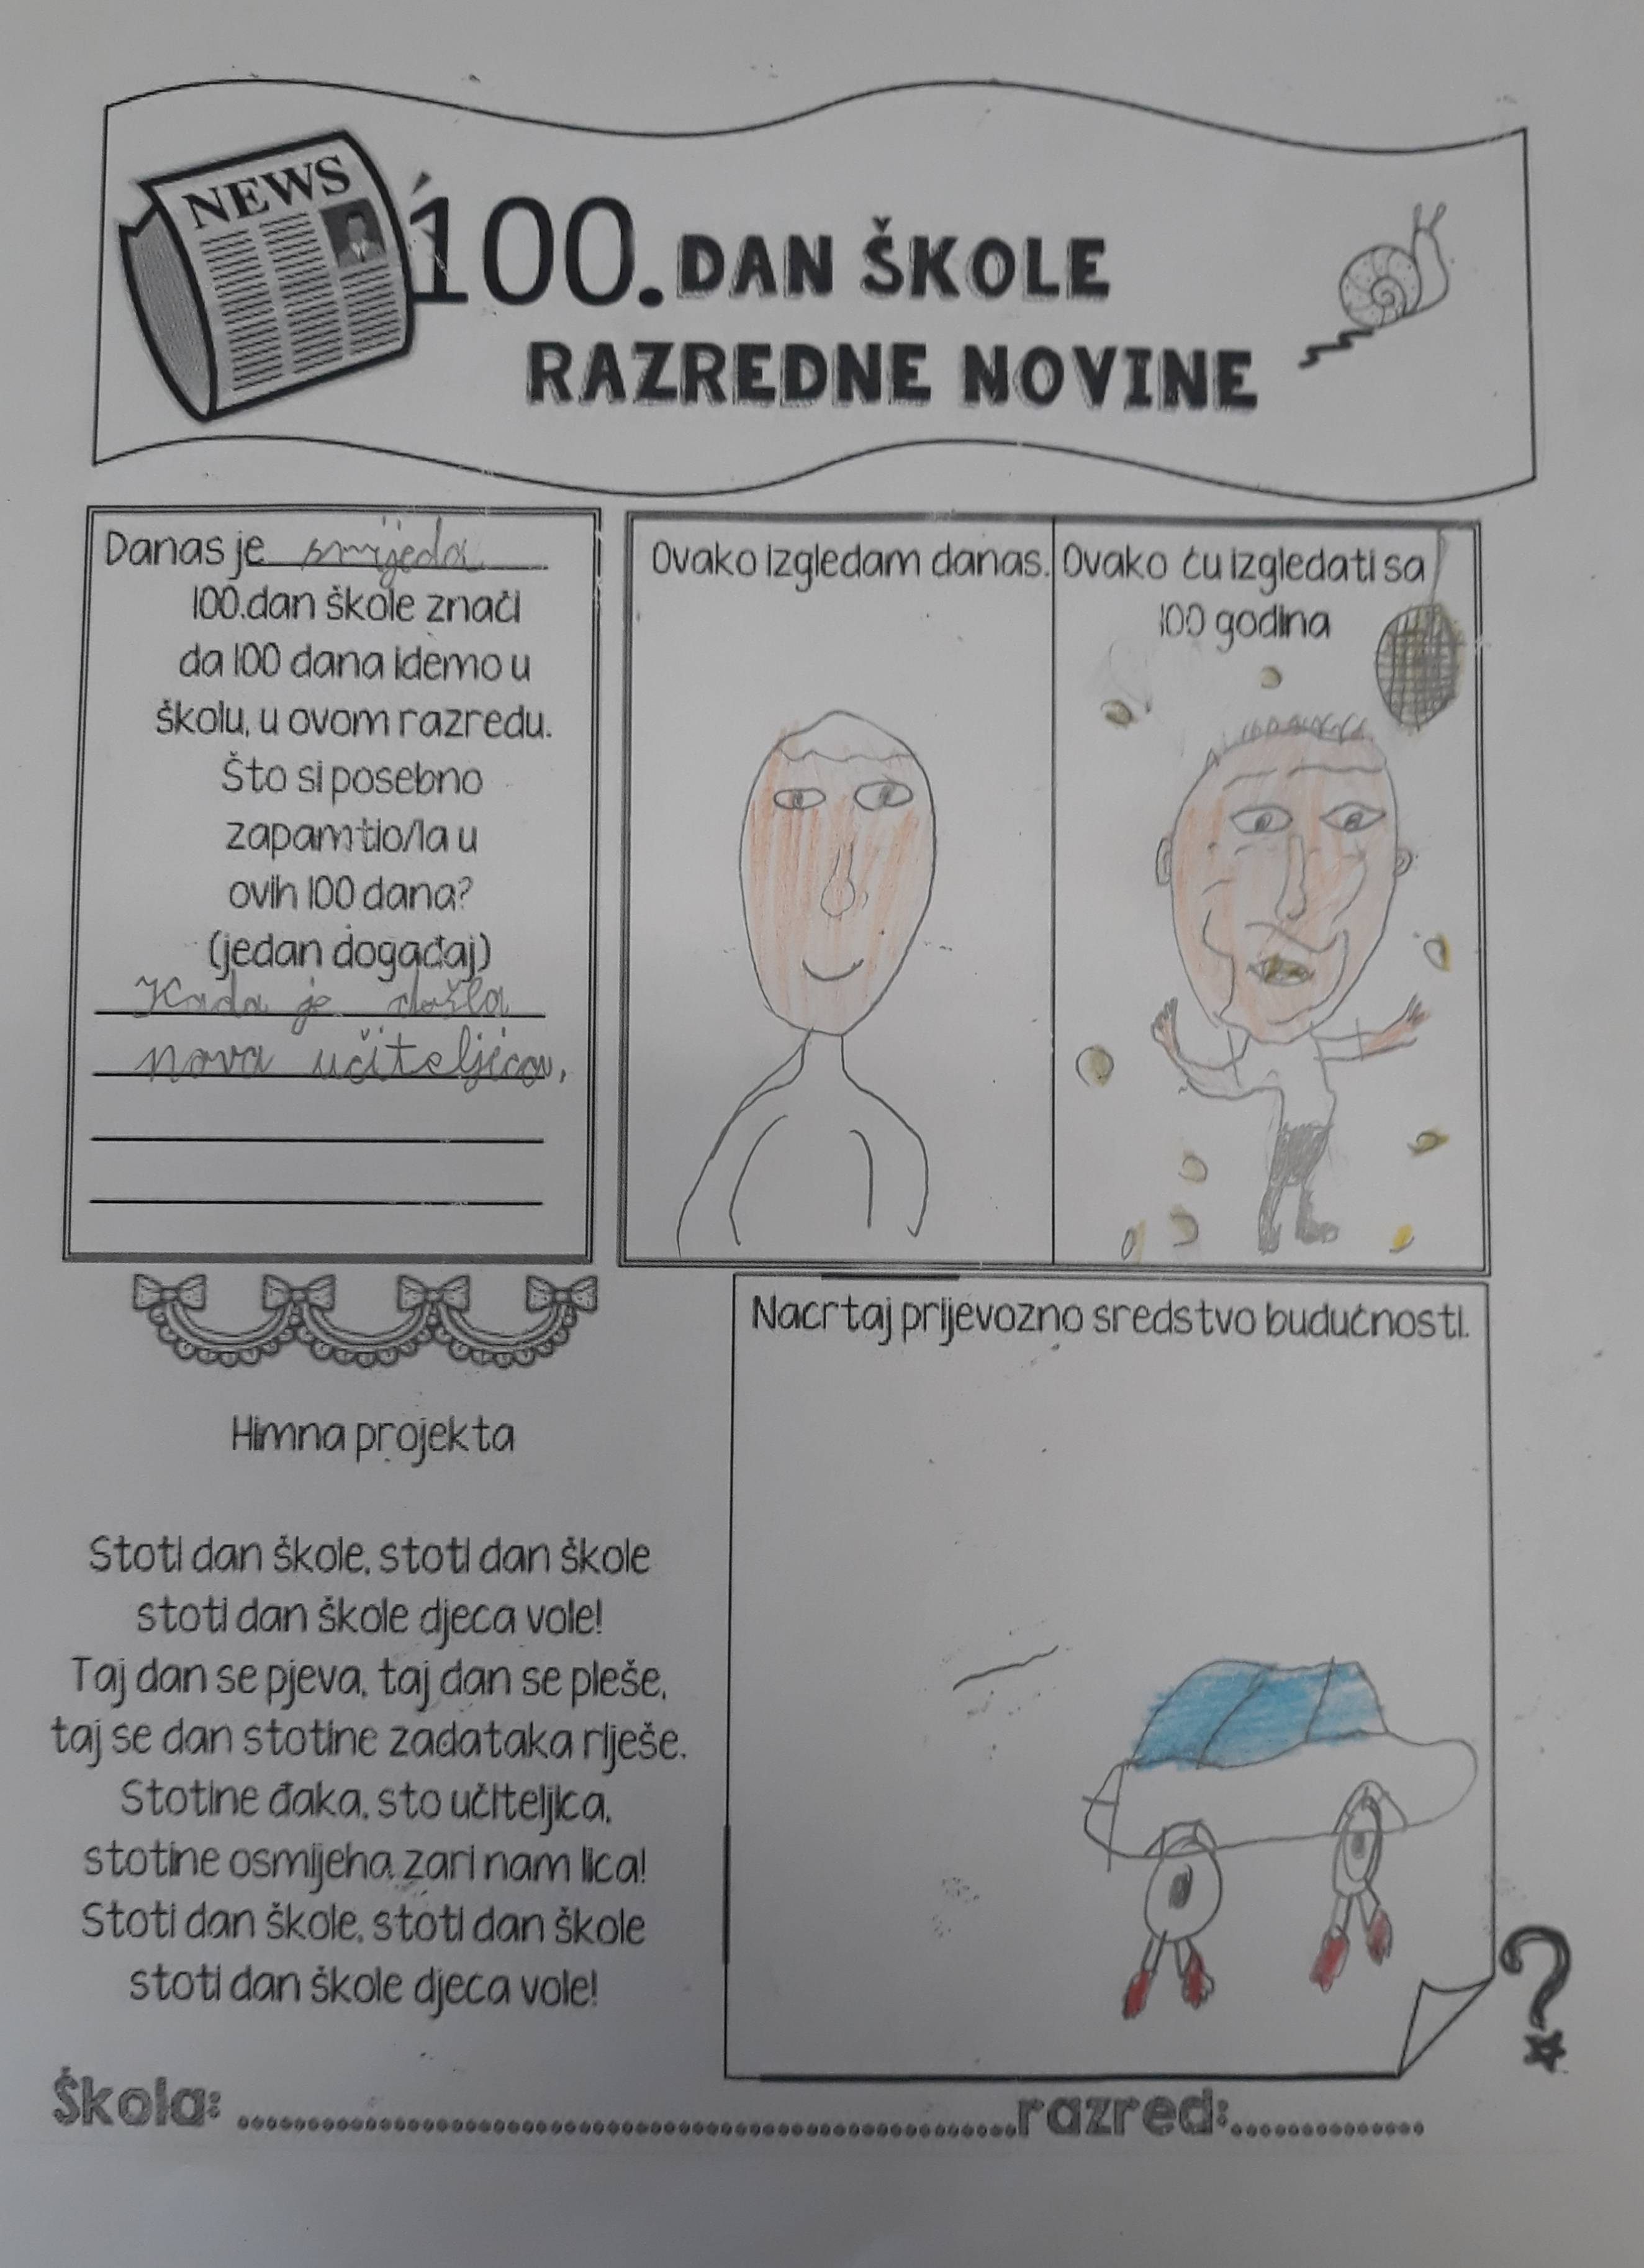 NEWS
100. DAN ŠKOLE
RAZREDNE NOVINE
Danas je srijeda
100.dan škole znači
da 100 dana idemo u
školu, u ovom razredu.
Što si posebno
zapamtio/la u
ovih 100 dana?
(jedan događaj)
Kada je došla
nova učiteljica,
Ovako izgledam danas.
Ovako ću izgledati sa
100 godina
Himna projekta
Stoti dan škole, stoti dan škole
stoti dan škole djeca vole!
Taj dan se pjeva, taj dan se pleše,
taj se dan stotine zadataka riješe.
Stotine đaka, sto učiteljica,
stotine osmijeha zari nam lica!
Stoti dan škole, stoti dan škole
stoti dan škole djeca vole!
Nacrtaj prijevozno sredstvo budućnosti.
?
Škola: ........................................................razred:..............